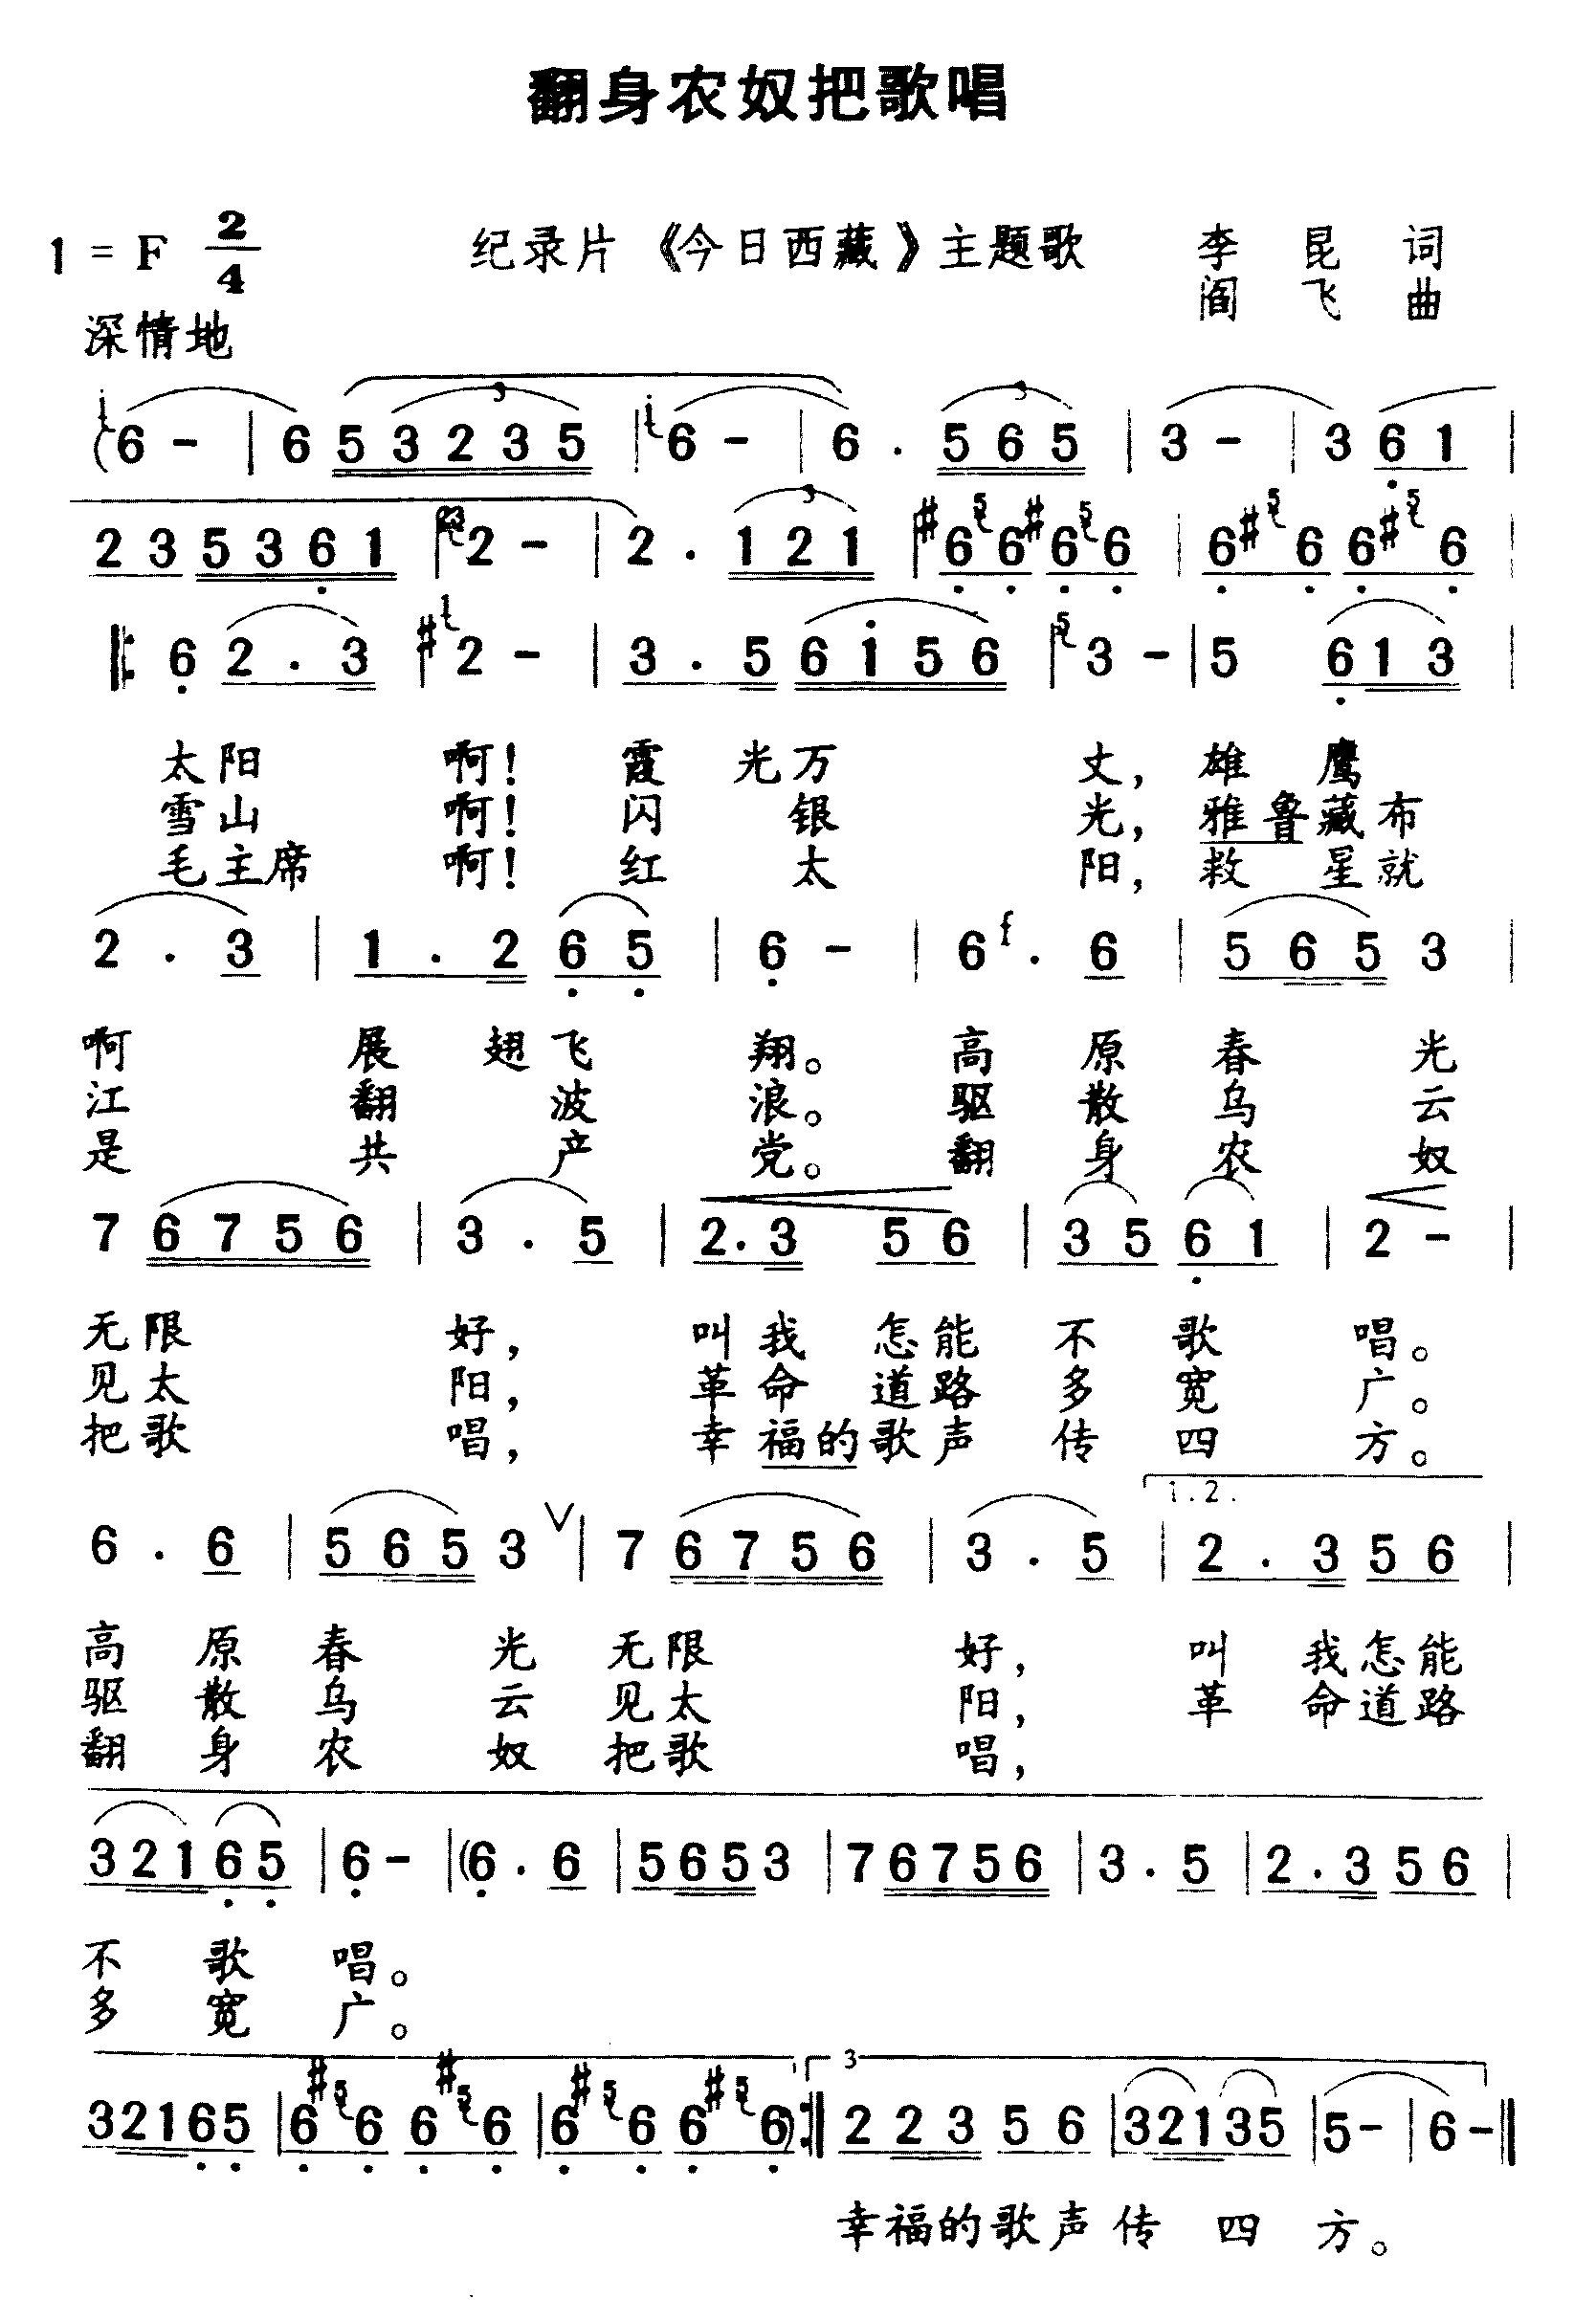 翻身农奴把歌唱
1 = F 2/4 纪录片《今日西藏》主题歌 李 昆 词
阎 飞 曲
深情地
(6 - | 6 5 3 2 3 5 | 6 - | 6 . 5 6 5 | 3 - | 3 6 1 |
2 3 5 3 6 1 | 2 - | 2 . 1 2 1 | #6 6 #6 6 | 6 #6 6 #6 |
6 2 . 3 | #2 - | 3 . 5 6 1 5 6 | 3 - | 5 6 1 3 |
太阳 啊！ 霞 光万 丈，雄 鹰
雪山 啊！ 闪 银 光，雅鲁藏布
毛主席 啊！ 红 太 阳，救 星就
2 . 3 | 1 . 2 6 5 | 6 - | 6 . 6 | 5 6 5 3 |
啊 展 翅飞 翔。 高 原 春 光
江 翻 波 浪。 驱 散 乌 云
是 共 产 党。 翻 身 农 奴
7 6 7 5 6 | 3 . 5 | 2 . 3 5 6 | 3 5 6 1 | 2 - |
无限 好， 叫我 怎能 不 歌 唱。
见太 阳， 革命 道路 多 宽 广。
把歌 唱， 幸福的歌声 传 四 方。
1.2.
6 . 6 | 5 6 5 3 | 7 6 7 5 6 | 3 . 5 | 2 . 3 5 6 |
高 原 春 光 无限 好， 叫 我怎能
驱 散 乌 云 见太 阳， 革 命道路
翻 身 农 奴 把歌 唱，
3 2 1 6 5 | 6 - | (6 . 6 | 5 6 5 3 | 7 6 7 5 6 | 3 . 5 | 2 . 3 5 6 |
不 歌 唱。
多 宽 广。
3
3 2 1 6 5 | #6 5 6 #6 5 6 | #6 5 6 #6 5 6) :| 2 2 3 5 6 | 3 2 1 3 5 | 5 - | 6 - ||
幸福的歌声传 四 方。